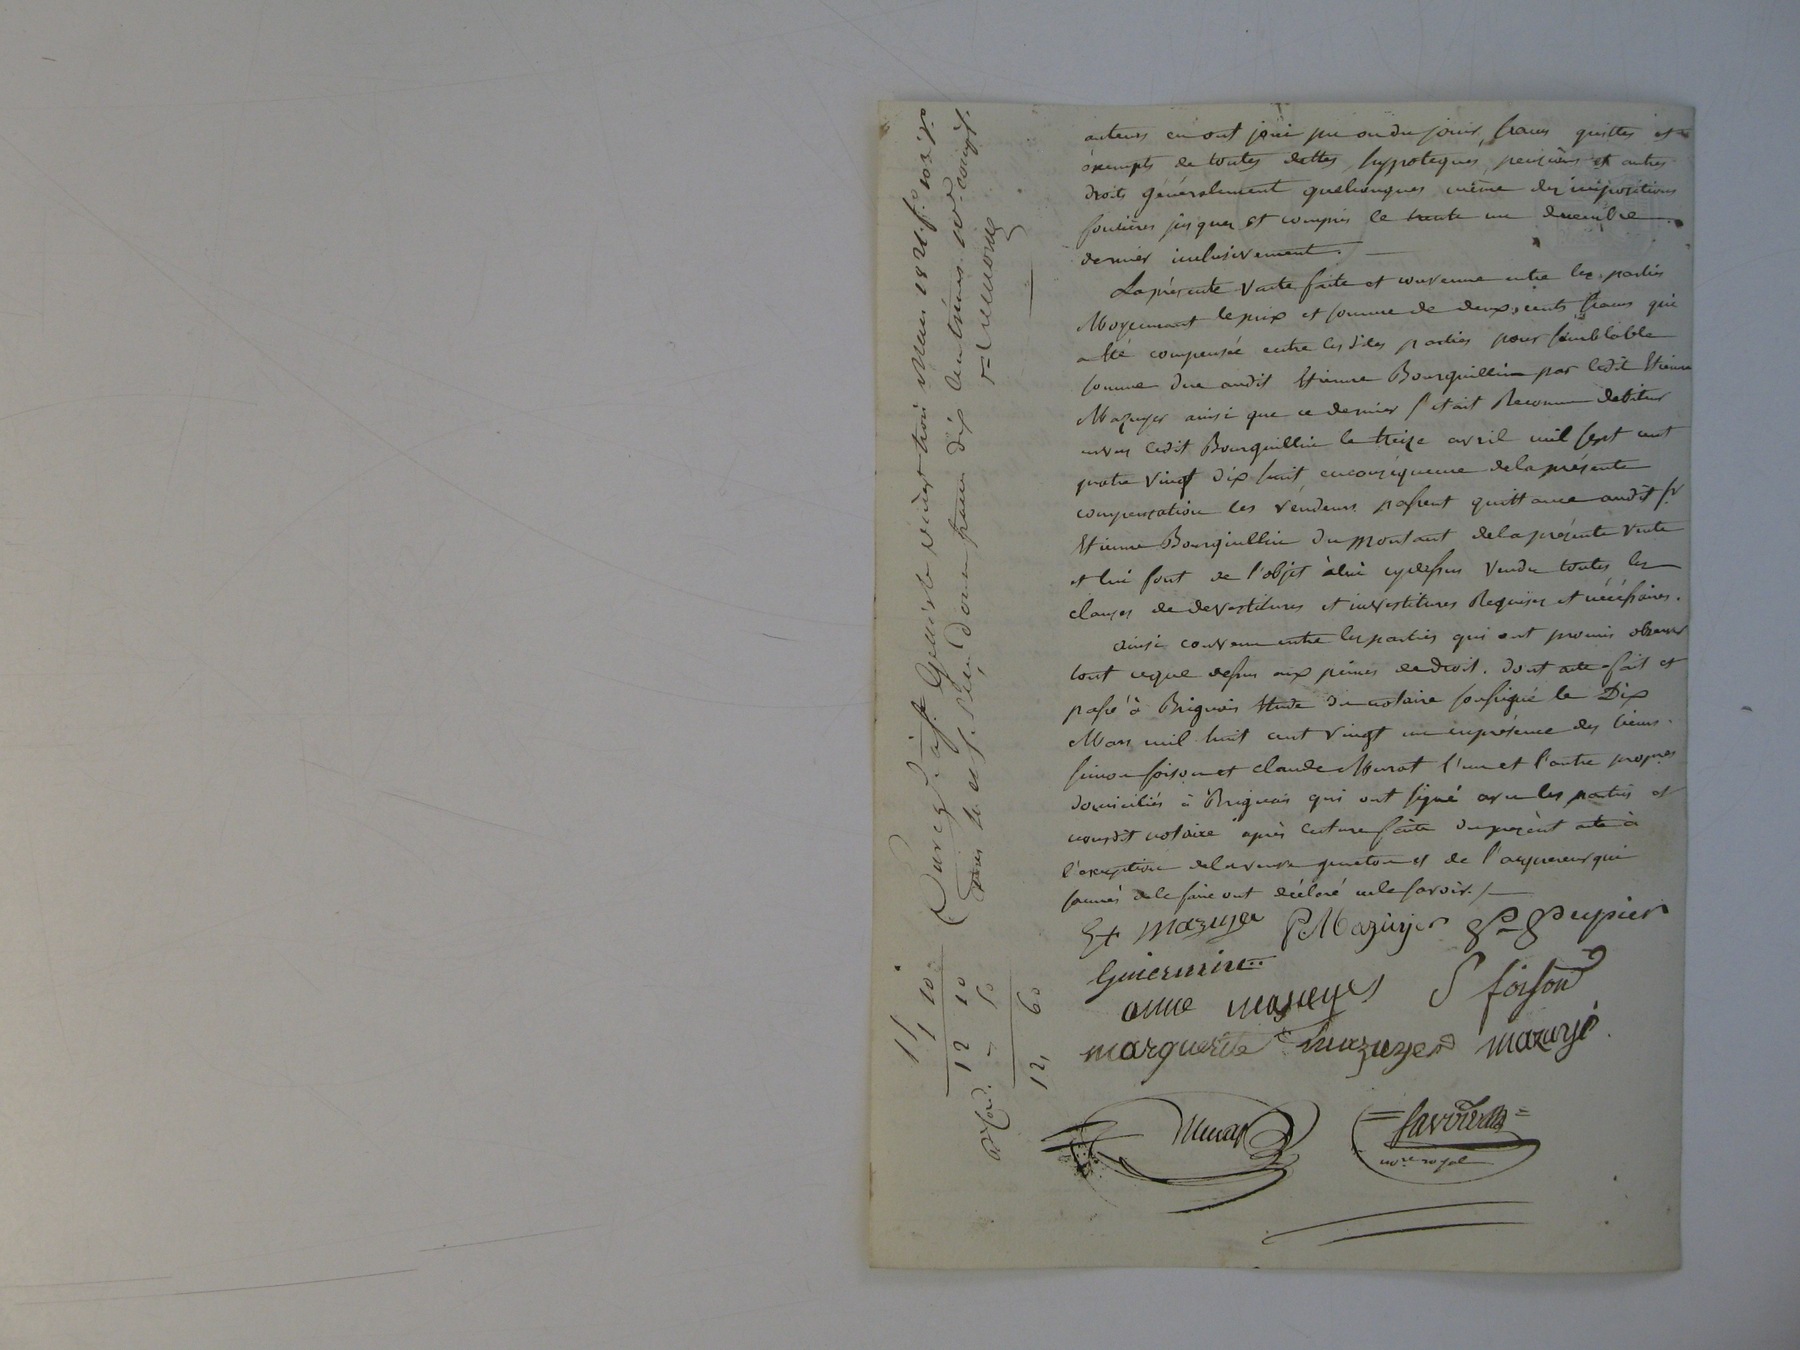 auteurs en ont joui pu ou du jouir, francs quittes et
exempts de toutes dettes, hypoteques, pensions et autres
droits généralement quelconques même des impositions
foncières jusques et compris le trente un decembre
dernier inclusivement.
La présente vente faite et convenue entre les parties
Moyennant le prix et somme de deux cents francs qui
a été compensée entre lesdites parties pour semblable
somme due audit Etienne Bourguillin par ledit Etienne
Mazuyer ainsi que ce dernier s'etait Reconnu debiteur
envers ledit Bourguillin le treize avril mil sept cent
quatre vingt dix huit, en conséquence de la présente
compensation les vendeurs passent quittance audit Sr
Etienne Bourguillin du montant de la présente vente
et lui font de l'objet à lui cydessus vendu toutes les
clauses de devestitures et investitures Requises et nécéssaires.
ainsi convenu entre les parties qui ont promis observer
tout ceque dessus aux peines de droit. dont acte fait et
passé à Brignais Etude du notaire soussigné le Dix
Mars mil huit cent vingt un en présence des sieurs
simon foison et claude Murat l'un et l'autre propres
domiciliés à Brignais qui ont signé avec les parties et
nousdit notaire après lecture faite du présent acte à
l'exception de la veuve et de l'acquereur qui
sommés de le faire ont déclaré ne le savoir. /
Et mazuyer P. Mazuyer pupier
Guiermin
anne mazuyer S foison
marguerite mazuyer mazuyé
Murat
notre royal
à Genis le vingt trois Mars 1821. fo
deux francs dix centimes 10e compris.
11
1 10
12 10
50
12, 60